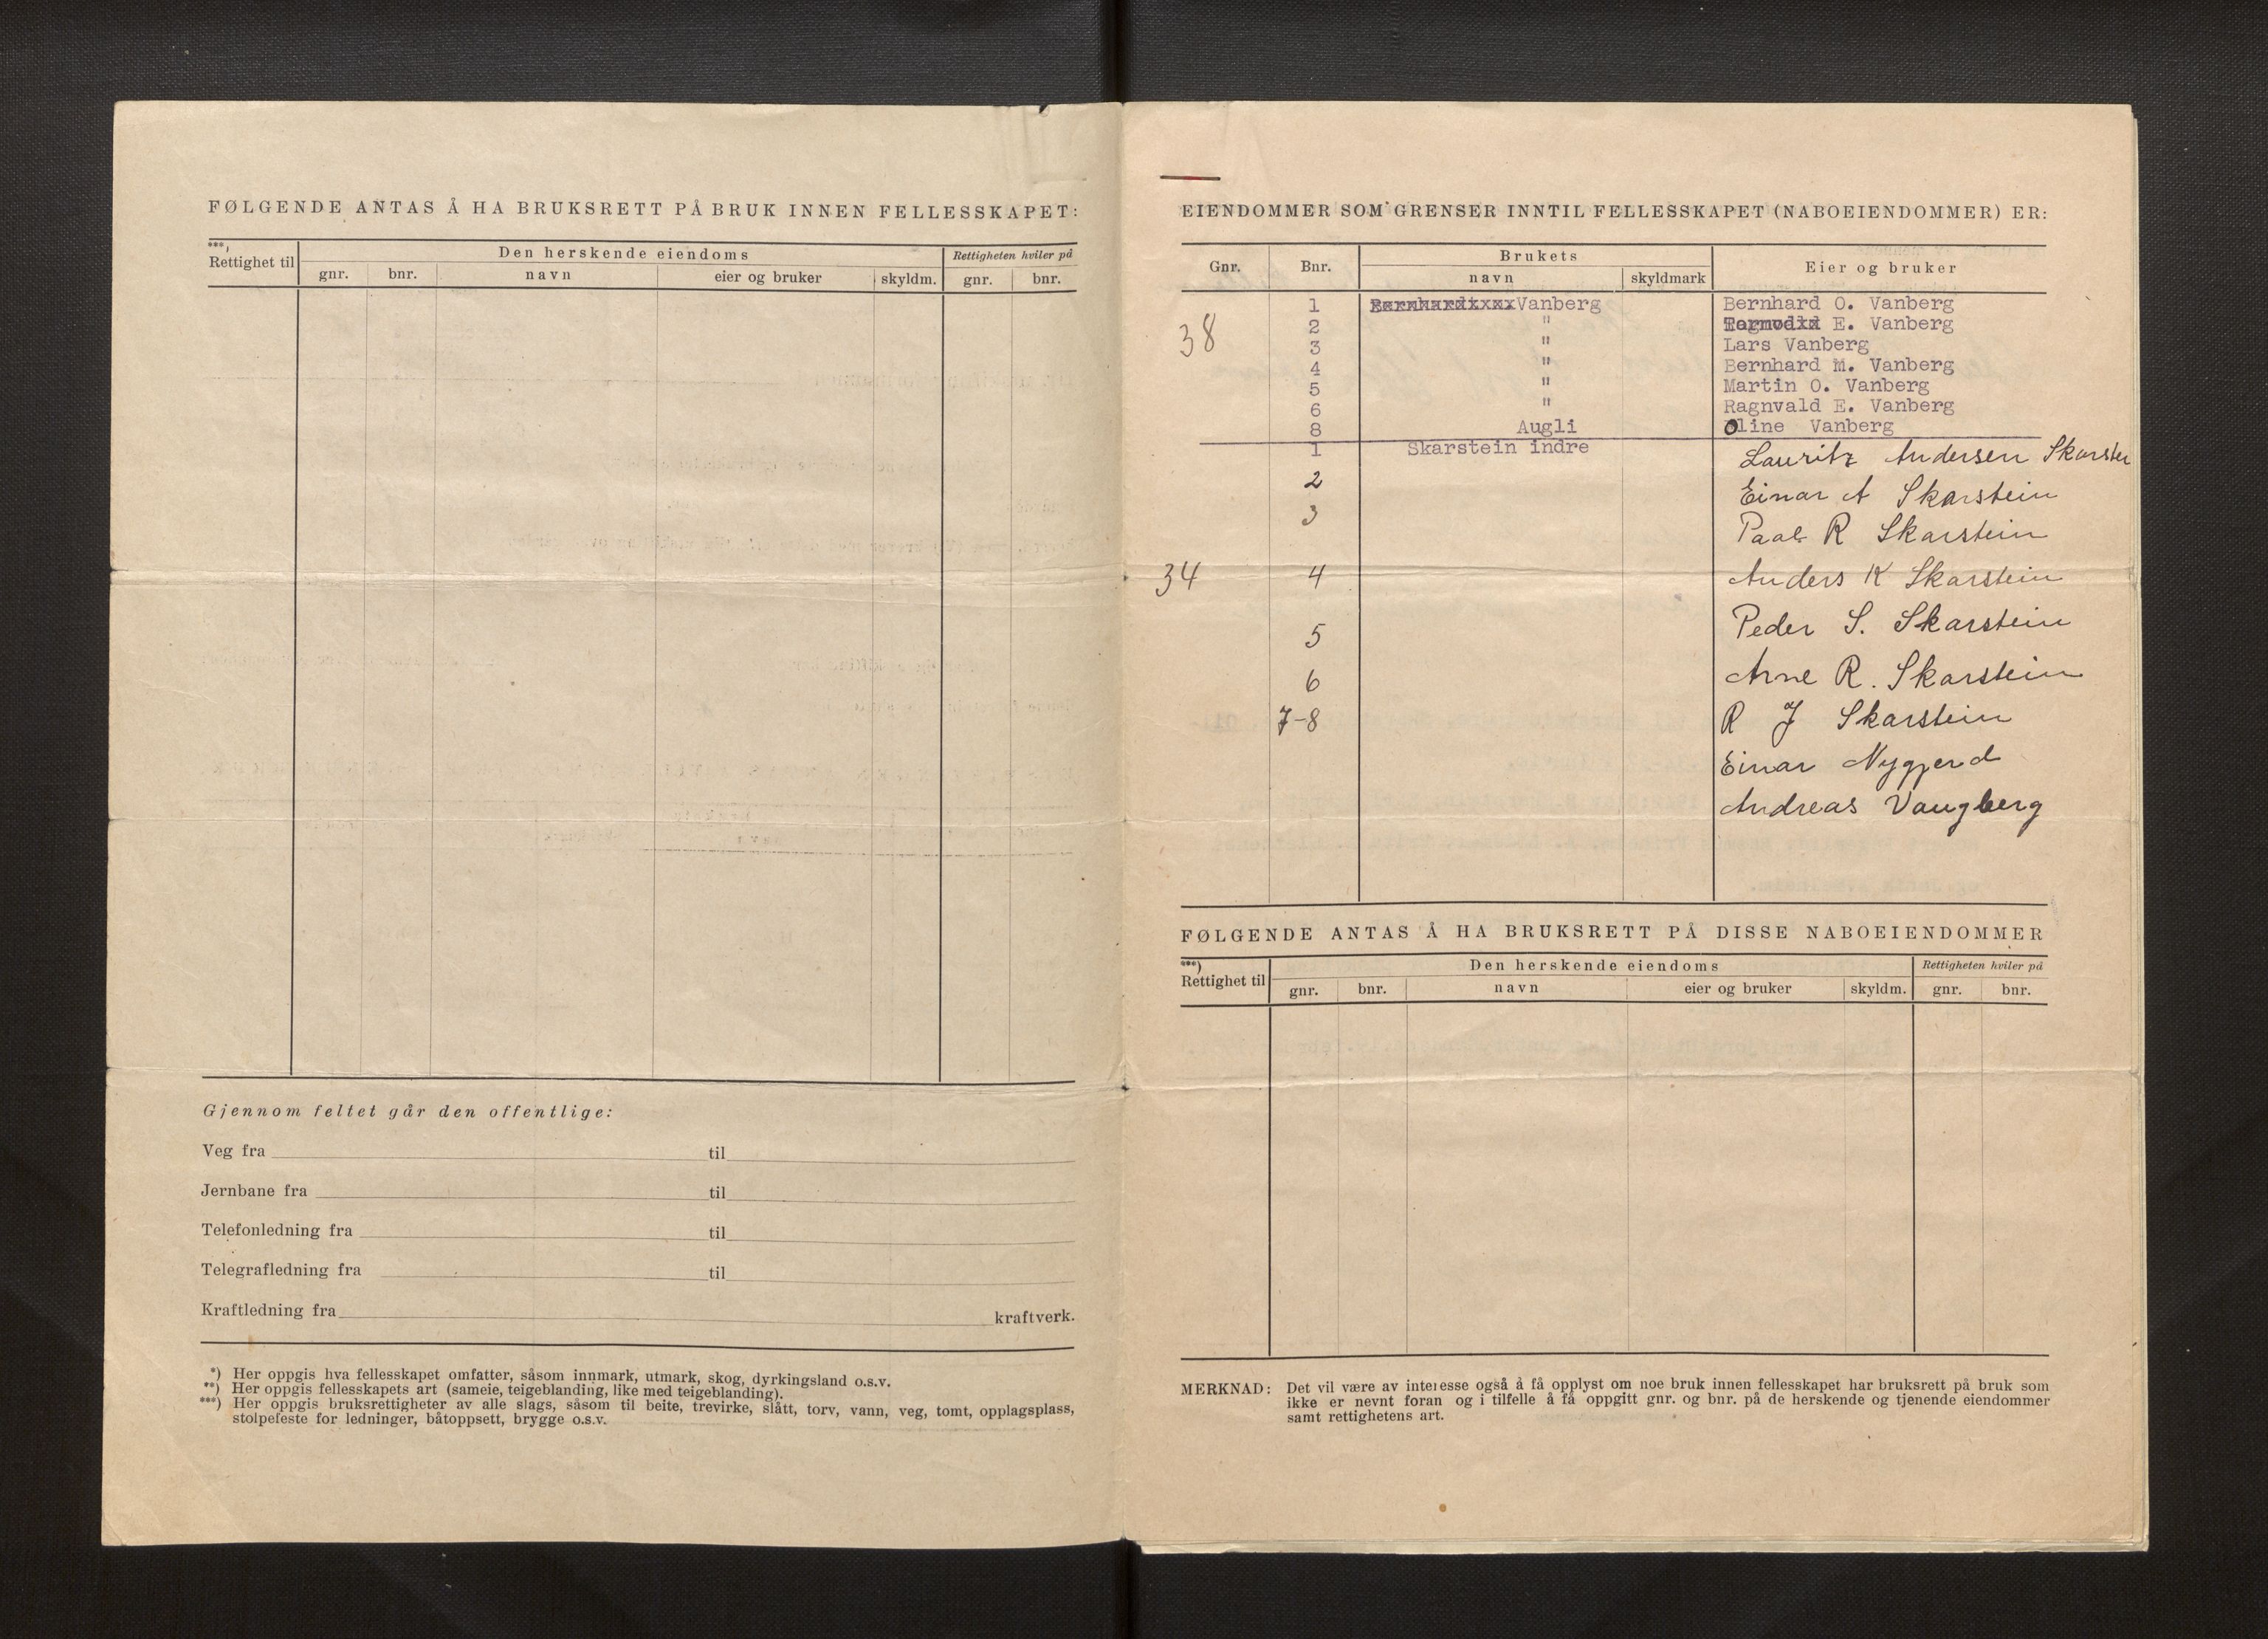 FØLGENDE ANTAS Å HA BRUKSRETT PÅ BRUK INNEN FELLESSKAPET:
***) Rettighet til
Den herskende eiendoms
Rettigheten hviler på
gnr. bnr. navn eier og bruker skyldm. gnr. bnr.
Gjennom feltet går den offentlige:
Veg fra til
Jernbane fra til
Telefonledning fra til
Telegrafledning fra til
Kraftledning fra kraftverk.
*) Her oppgis hva fellesskapet omfatter, såsom innmark, utmark, skog, dyrkingsland o.s.v.
**) Her oppgis fellesskapets art (sameie, teigeblanding, like med teigeblanding).
***) Her oppgis bruksrettigheter av alle slags, såsom til beite, trevirke, slått, torv, vann, veg, tomt, opplagsplass,
stolpefeste for ledninger, båtoppsett, brygge o.s.v.
EIENDOMMER SOM GRENSER INNTIL FELLESSKAPET (NABOEIENDOMMER) ER:
Gnr. Bnr. Brukets Eier og bruker
navn skyldmark
1 Vanberg Bernhard O. Vanberg
38 2 " E. Vanberg
3 " Lars Vanberg
4 " Bernhard M. Vanberg
5 " Martin O. Vanberg
6 " Ragnvald E. Vanberg
8 Augli Oline Vanberg
1 Skarstein indre Lauritz Andersen Skarstei
2 Einar A Skarstein
3 Paal R Skarstein
34 4 Anders K Skarstein
5 Peder S. Skarstein
6 Arne R. Skarstein
7-8 R J Skarstein
Einar Nygjerd
Andreas Vangberg
FØLGENDE ANTAS Å HA BRUKSRETT PÅ DISSE NABOEIENDOMMER
***) Rettighet til
Den herskende eiendoms
Rettigheten hviler på
gnr. bnr. navn eier og bruker skyldm. gnr. bnr.
MERKNAD: Det vil være av interesse også å få opplyst om noe bruk innen fellesskapet har bruksrett på bruk som
ikke er nevnt foran og i tilfelle å få oppgitt gnr. og bnr. på de herskende og tjenende eiendommer
samt rettighetens art.